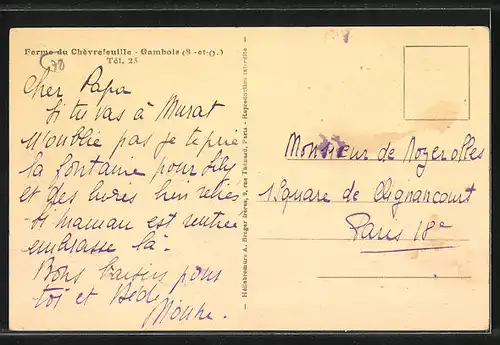 Ferme du Chèvrefeuille - Gambais (S.-et-O.)
Tél. 25
Cher Papa
Si tu vas à Murat
N'oublie pas je te prie
la fontaine pour
et des livres bien reliés
Si maman est rentrée
embrasse la -
Bons baisers pour
toi et Bédé
Héliotromure A. Breger frères, 9, rue Thénard, Paris - Reproduction interdite
Monsieur de Nozerolles
1 Square de Clignancourt
Paris 18e